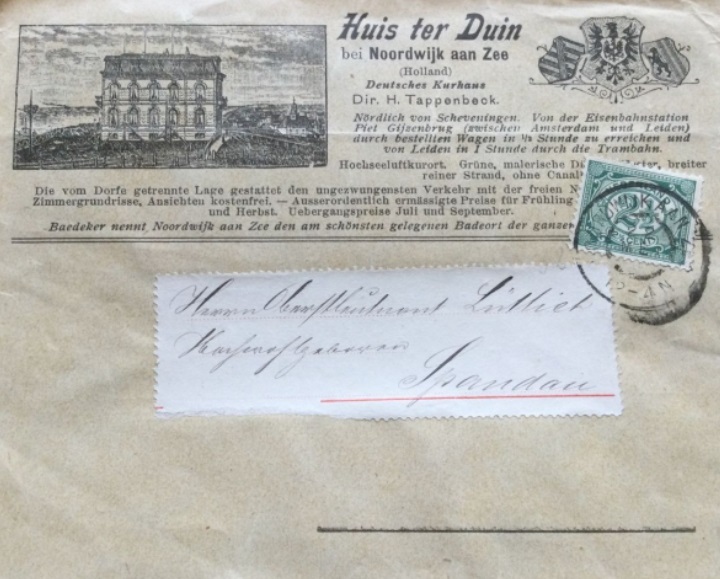 Huis ter Duin
bei Noordwijk aan Zee
(Holland)
Deutsches Kurhaus
Dir. H. Tappenbeck.
Nördlich von Scheveningen. Von der Eisenbahnstation
Piet Gijzenbrug (zwischen Amsterdam und Leiden)
durch bestellten Wagen in ¾ Stunde zu erreichen und
von Leiden in 1 Stunde durch die Trambahn.
Hochseeluftkurort. Grüne, malerische breiter
reiner Strand, ohne
Die vom Dorfe getrennte Lage gestattet den ungezwungensten Verkehr mit der freien
Zimmergrundrisse, Ansichten kostenfrei. — Ausserordentlich ermässigte Preise für Frühling
und Herbst. Uebergangspreise Juli und September.
Baedeker nennt Noordwijk aan Zee den am schönsten gelegenen Badeort der ganzen
Herrn Oberstleutnant
Hochwohlgeboren
Spandau